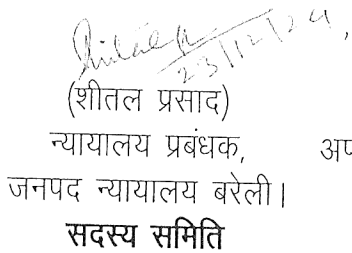 23/12/24
(शीतल प्रसाद)
न्यायालय प्रबंधक, अप
जनपद न्यायालय बरेली।
सदस्य समिति